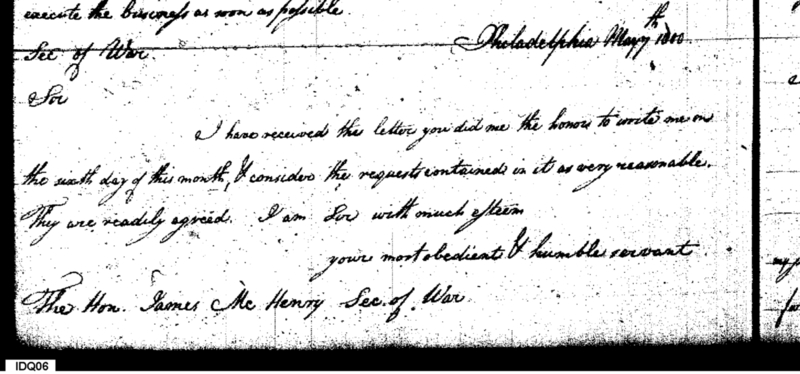 execute the business as soon as possible
Philadelphia May 7th 1800.
Sec of War
Sir
I have received the letter you did me the honor to write me on
the sixth day of this month, & consider the requests contained in it as very reasonable.
They are readily agreed. I am Sir with much esteem
your most obedient & humble servant
The Hon. James McHenry Sec. of War
IDQ06